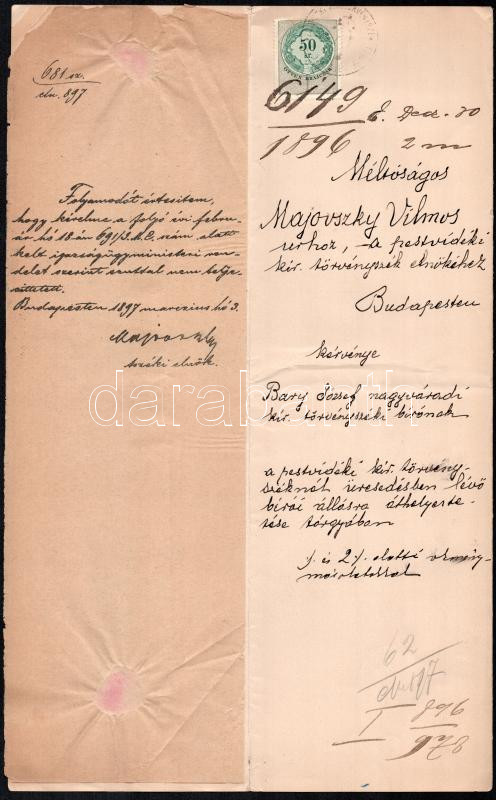 681 sz.
eln. 897
Folyamodót értesitem,
hogy kérelme a folyó évi febru-
ár hó 18-án 691/I.M.E. szám alatt
kelt igazságügyministeri ren-
delet szerint ezuttal nem telje-
sittetett.
Budapesten 1897 marczius hó 3.
Majovszky
tszéki elnök.
50
kr.
6149
1896
E. Dec. 30
2 m
Méltóságos
Majovszky Vilmos
úrhoz, a pestvidéki
kir. törvényszék elnökéhez
Budapesten
kérvénye
Bary József nagyváradi
kir. törvényszéki birónak
a pestvidéki kir. törvény-
széknél üresedésben lévő
birói állásra áthelyezte-
tése tárgyában
1/. és 2/. alatti okmány-
másolatokkal
62
eln. 897
I 896
876
darabanth